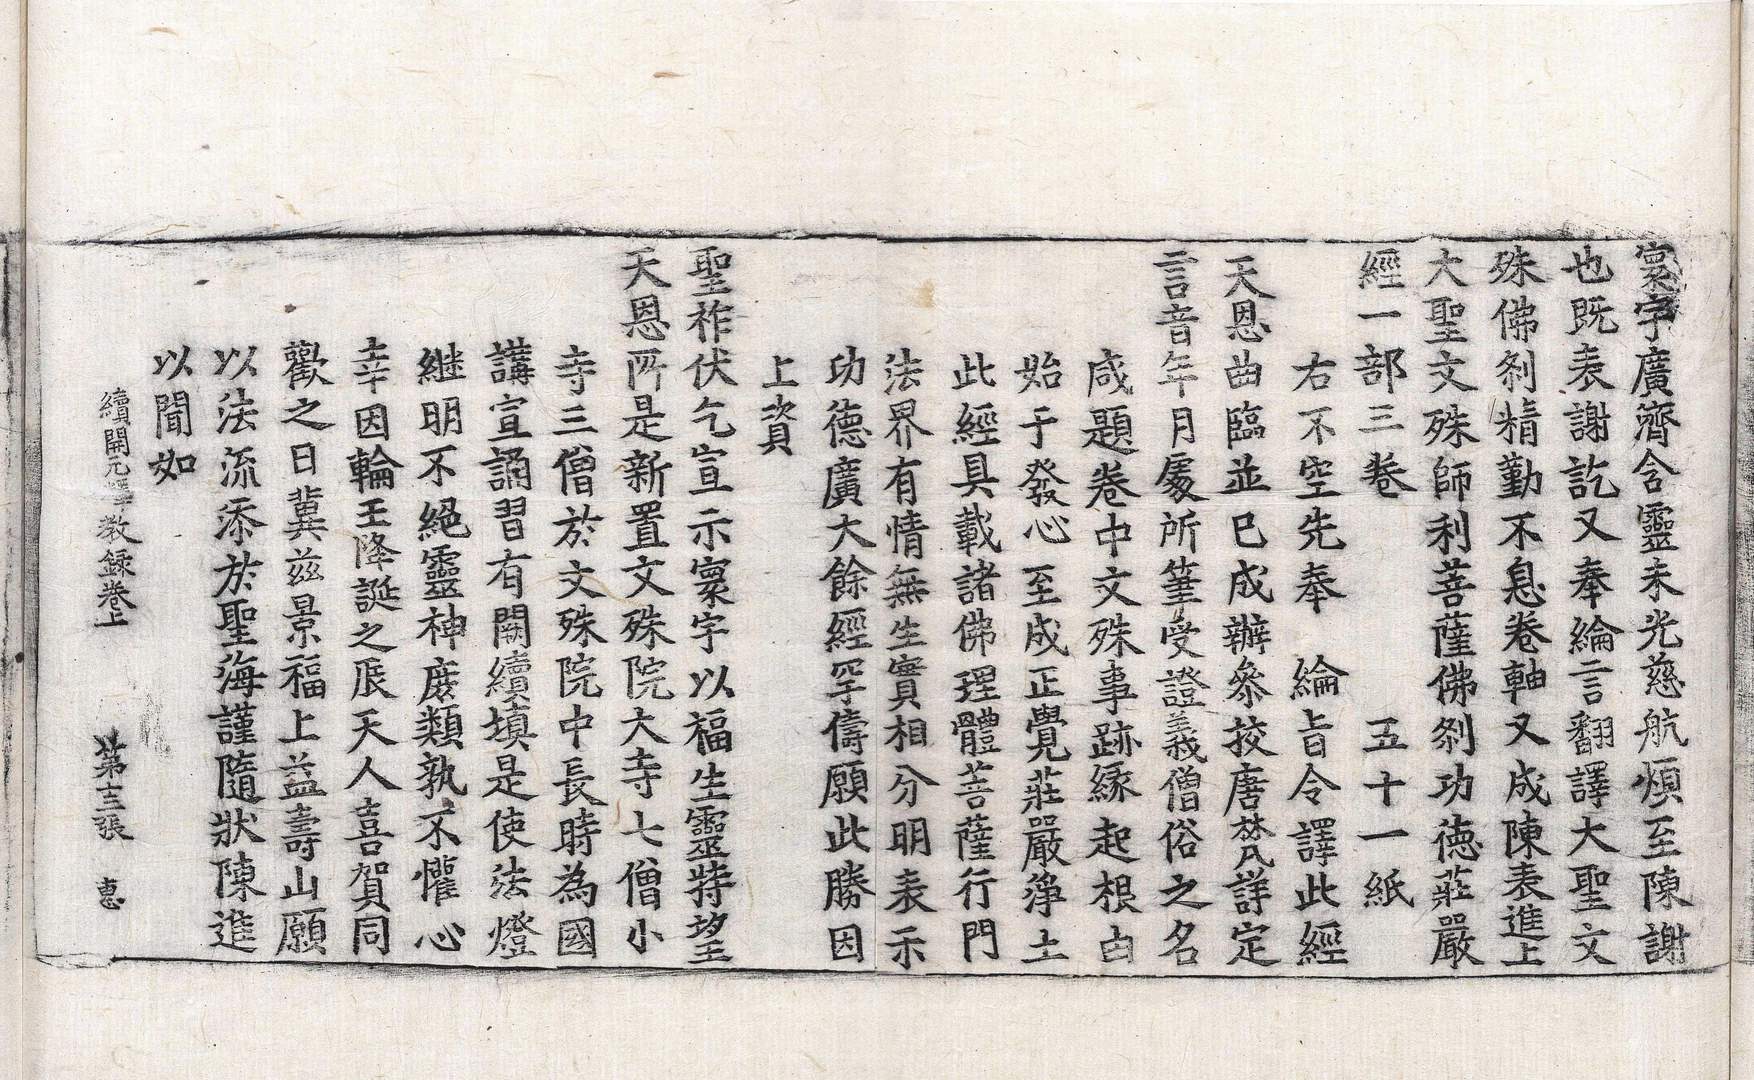 寰宇廣濟含靈未光慈航煩至陳謝
也既表謝訖又奉綸言翻譯大聖文
殊佛刹精勤不息卷軸又成陳表進上
大聖文殊師利菩薩佛刹功德莊嚴
經一部三卷　五十一紙
右不空先奉　綸旨令譯此經
天恩曲臨並已成辦叅挍唐梵詳定
言音年月處所筆受證義僧俗之名
咸題卷中文殊事跡縁起根由
始于發心至成正覺莊嚴淨土
此經具載諸佛理體菩薩行門
法界有情無生實相分明表示
功德廣大餘經罕儔願此勝因
上資
聖祚伏乞宣示寰宇以福生靈特望
天恩所是新置文殊院大寺七僧小
寺三僧於文殊院中長時為國
講宣誦習有闕續填是使法燈
継明不絕靈神庶類孰不懽心
幸因輪王降誕之辰天人喜賀同
歡之日冀茲景福上益壽山願
以法流添於聖海謹隨狀陳進
以聞如
續開元釋教錄卷上　第十三張　惠